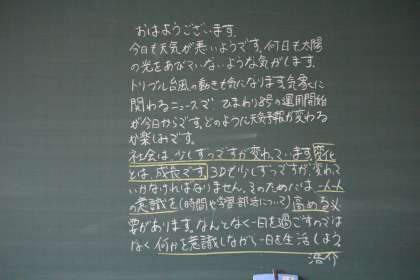 おはようございます。
今日も天気が悪いようです。何日も太陽
の光をあびていないような気がします。
トリプル台風の動きも気になります。気象に
関わるニュースで ひまわり8号の運用開始
が今日からです。どのように天気予報が変わる
か楽しみです。
社会は少しずつですが変わっています。変化
とは、成長です。3Dで少しずつですが変わって
いかなければなりません。そのためには一人一人
の意識を(時間や学習、部活について)高める必
要があります。なんとなく一日を過ごすのでは
なく何かを意識しながら一日を生活しよう
浩介